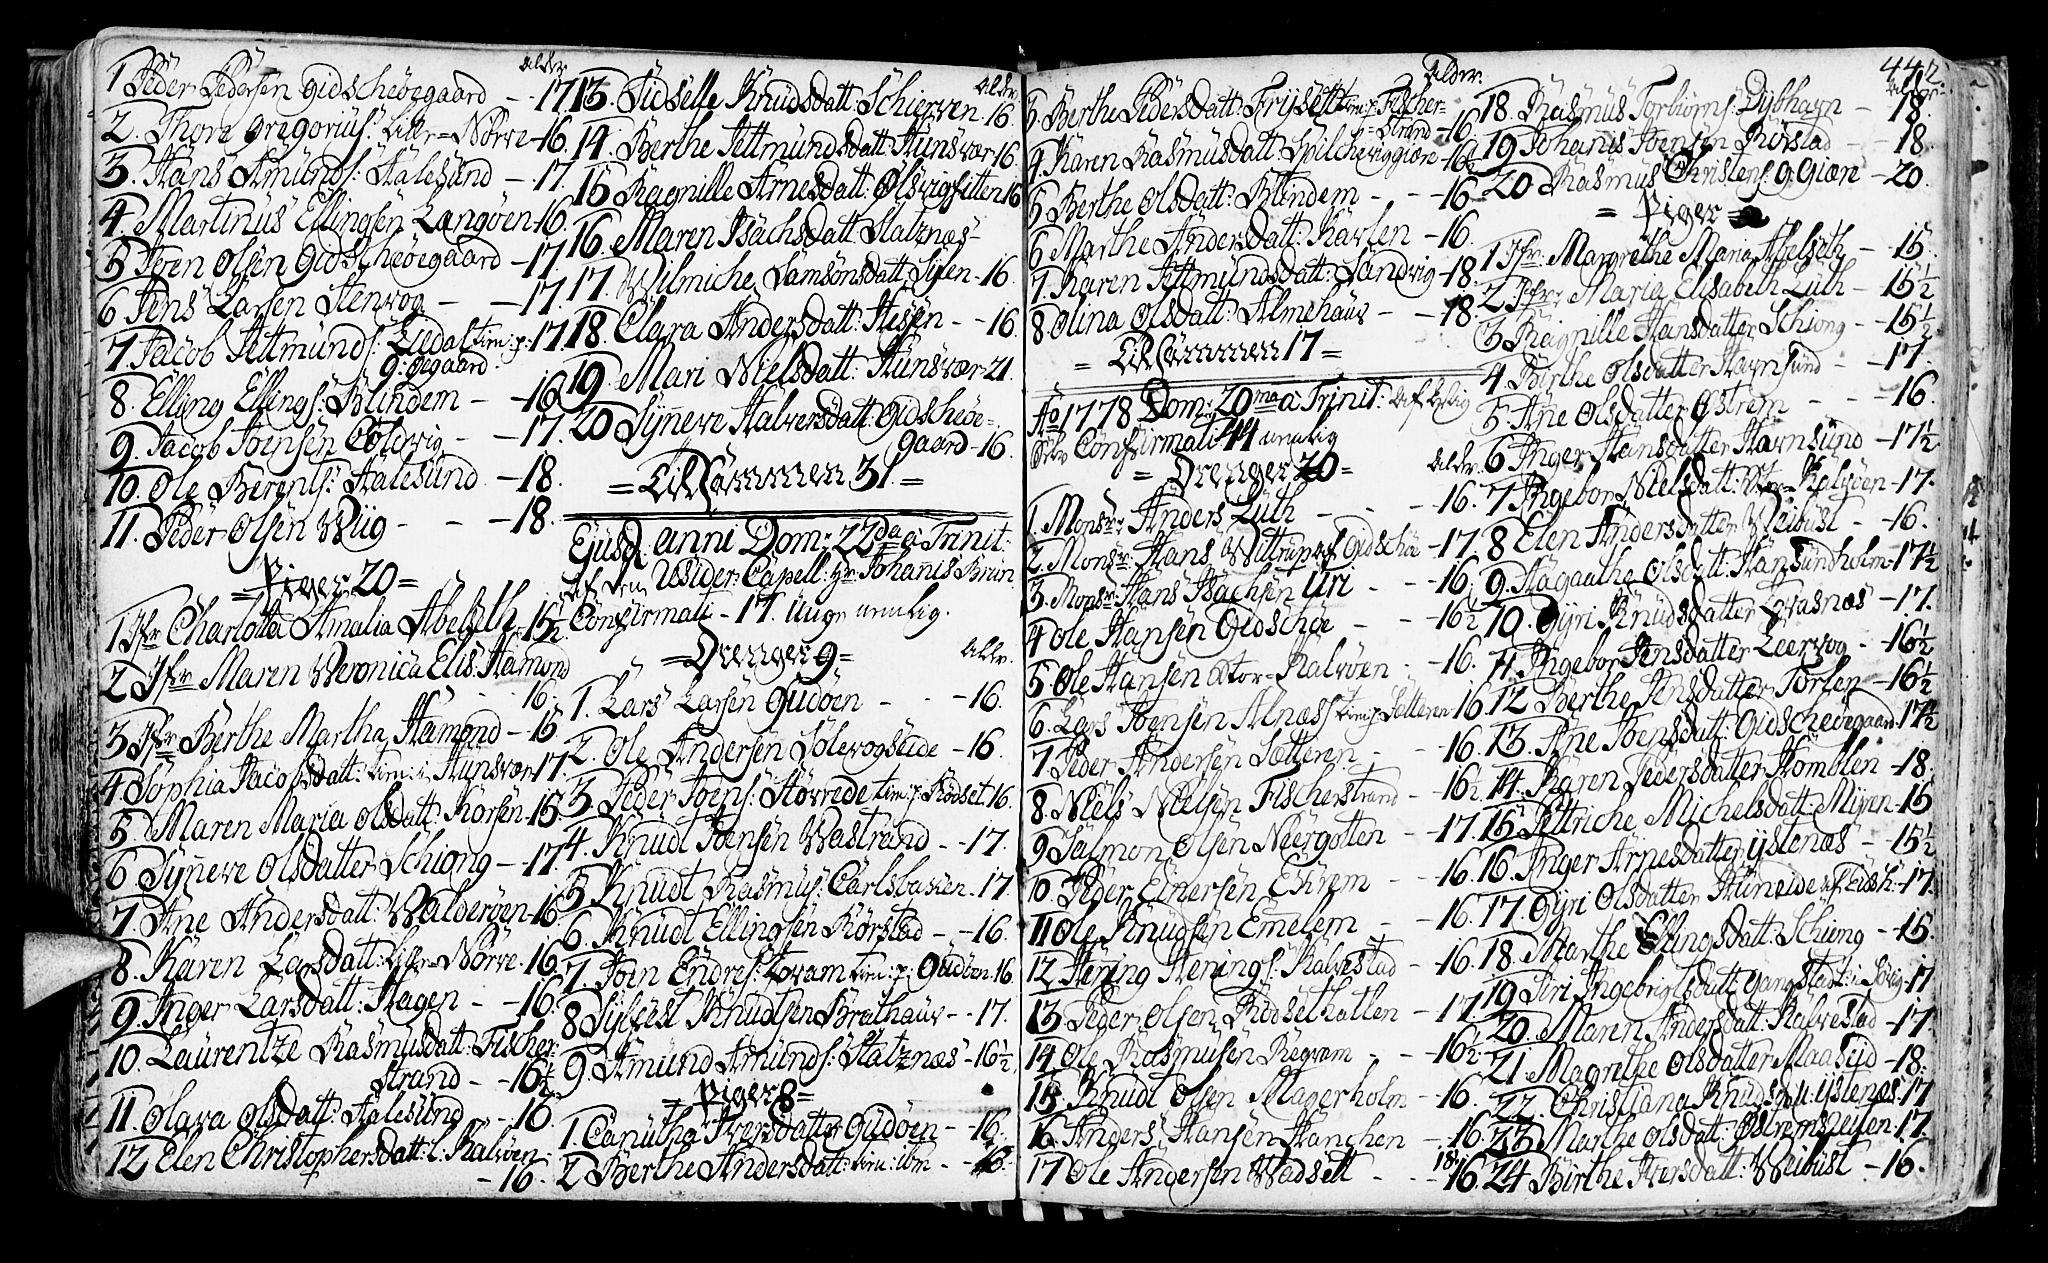 Aldr.
1 Peder Pedersen Gidschøegaard - 17.
2. Thore Gregorius: Lille=Nørve - 16.
3. Hans Amunds: Aalesund - 17.
4. Martinus Ellingsen Langøen - 16.
5 Joen Olsen Gidschøegaard - 17.
6 Jens Larsen Stenvog - - 17.
7. Jacob Jettmunds: tien: p: 17.
9: Øegaard.
8. Elling Ellings: Blindem - 16
9. Jacob Joensen - 17.
10. Ole Berents: Aalesund - 18.
11. Peder Olsen Wiig - - - 18.
= Piger 20 =
1 Jfr Charlotta Amalia Abelseth - 15½
2 Jfr Maren Veronica Elis: Hamond
16.
3 Jfr Berthe Martha Hamond - 15
4. Sophia Jacobsdatt: tien: i Hunsvær 17.
5. Maren Maria Olsdatt: Korsen - 15.
6 Syneve Olsdatter Schiong - 17.
7. Ane Andersdatt: Walderøen - 16
8. Karen Larsdatt: Lille=Nørve - 16.
9. Inger Larsdatt: Hagen - - 16.
10. Laurentze Rasmusdatt: Fischer:
Strand - - 16½
11. Olava Olsdatt: Aalesund - 16.
12 Elen Christophersdatt: l: Kalvøen -
- 16.
Aldr.
13. Sidselle Knudsdatt: Schierven - 16
14. Berthe Jettmundsdatt: Hunsvær 16.
15 Ragnille Arnesdatt: Olsvigsitten 16
16. Maren Isachsdatt: Slatznæs -
17. Wilmiche Samsonsdatt: - 16
18. Clara Andersdatt: Hessen - - 16
19. Mari Nielsdatt: Hunsvær - 21.
20 Syneve Halversdatt: Gidschøe-
gaard - 16.
= Tilsammen 31. =
Ejusd: anni Dom: 22da a Trinit:
af den Resider: Capell: Hr Johanis Brun
Confirmati - 17. unge nemlig.
= Drenger 9 = Aldr.
1. Lars Larsen Gudøen - - - 16.
2. Ole Andersen Solevogseide - 16.
3. Peder Joens: tien: p: Rødset 16.
4. Knudt Joensen Wastrand - - 17.
5 Knudt Rasmus: - 17
6. Knudt Ellingsen Rørstad - - 16.
7. Joen Endres: tien: p: Gudøen 16
8 Knudtsen Brathaus - - 17.
9. Amund Amunds: Slatznæs - 16½
= Piger 8 =
1. Canutha Iversdatter Gudøen - 16.
2 Berthe Andersdatt: tien: ibm - - 16.
Aldr.
3. Berthe Pedersdatt: tien: p: Fischer-
Strand - 16.
4. Karen Rasmusdatt: Spilchevigsgiære - 16½
5 Berthe Olsdatt: Blindem - - - 16.
6 Marthe Andersdatt: - 16.
7. Karen Jettmundsdatt: Sandvig - 18.
8 Olina Olsdatt: Almehaus - - 18.
= Tilsammen 17 =
Ao 1778 Dom: 20ma a Trinit: af
Confirmati 44 nemlig
= Drenger 20 = Aldr.
1. Monsr: Anders Luth - - - 16.
2. Monsr: Hans Wittrup af Gidschøe - 17.
3. Monsr: Hans Isachsen Uri - - 16.
4 Ole Hansen Gidschøe - - - 16½
5 Ole Hansen Stor=Kalvøen - - 16.
6. Lars Joensen Alnæs tien: p: Sætteren 16.
7 Peder Andersen Sætteren - - 16.
8. Niels Nielsen Fischerstrand - 16½
9 Salmon Olsen - 17.
10. Peder Einersen Ekrem - - 16.
11 Ole Knudsen Emelem - - 16.
12 Hening Henings: Kalvestad - 16.
13 Peder Olsen - 17.
14 Ole Rasmusen - - 16½
15 Knudt Olsen Magerholm - - 16.
16 Anders Hansen - - 16.
17 Ole Andersen Wadsett - - - 16.
442
18. Rasmus Torbiørns: Dybhavn - 18.
19 Johanis Joensen Rørstad - - 18.
20 Rasmus Christens: Giære - 20.
= Piger
1 Jfr: Margrethe Maria Abelseth - 15.
2 Jfr: Maria Elisabeth Luth - 15½
3 Ragnille Hansdatter Schiong - 15½
4. Birthe Olsdatter Havnsund - 17.
5 Ane Olsdatter Østrem - - 16.
6 Inger Hansdatter Havnsund - 17½
7 Ingebor Nielsdatt: Kalvøen - 17.
8 Elen Andersdatter Weibust - - 16.
9. Aagaathe Olsdatt: Havnsundholm - 17½
10. Gyri Knudsdatter - 17.
11. Ingebor Jensdatter Leervog - 16½
12 Berthe Jensdatter - 16½
13. Ane Joensdatt: Gidschøegaard - 17½
14. Karen Pedersdatter - 18.
15 Pettriche Michelsdatt: Myren - 15
16. Inger Arnesdatter Ystenæs - 15½
17. Gyri Olsdatter - 17.
18. Marthe Ellingsdatt: Schiong - 15.
19 Siri Ingebrigtsdatt: - 17
20. Maren Andersdatt: Kalvestad - 17.
21. Magrethe Olsdatter Maaseid - 18.
22. Christiana Knudsdatt: Ystenæs - 17
23. Marthe Olsdatt: - 17
24 Birthe Iversdatt: Weibust - 16.